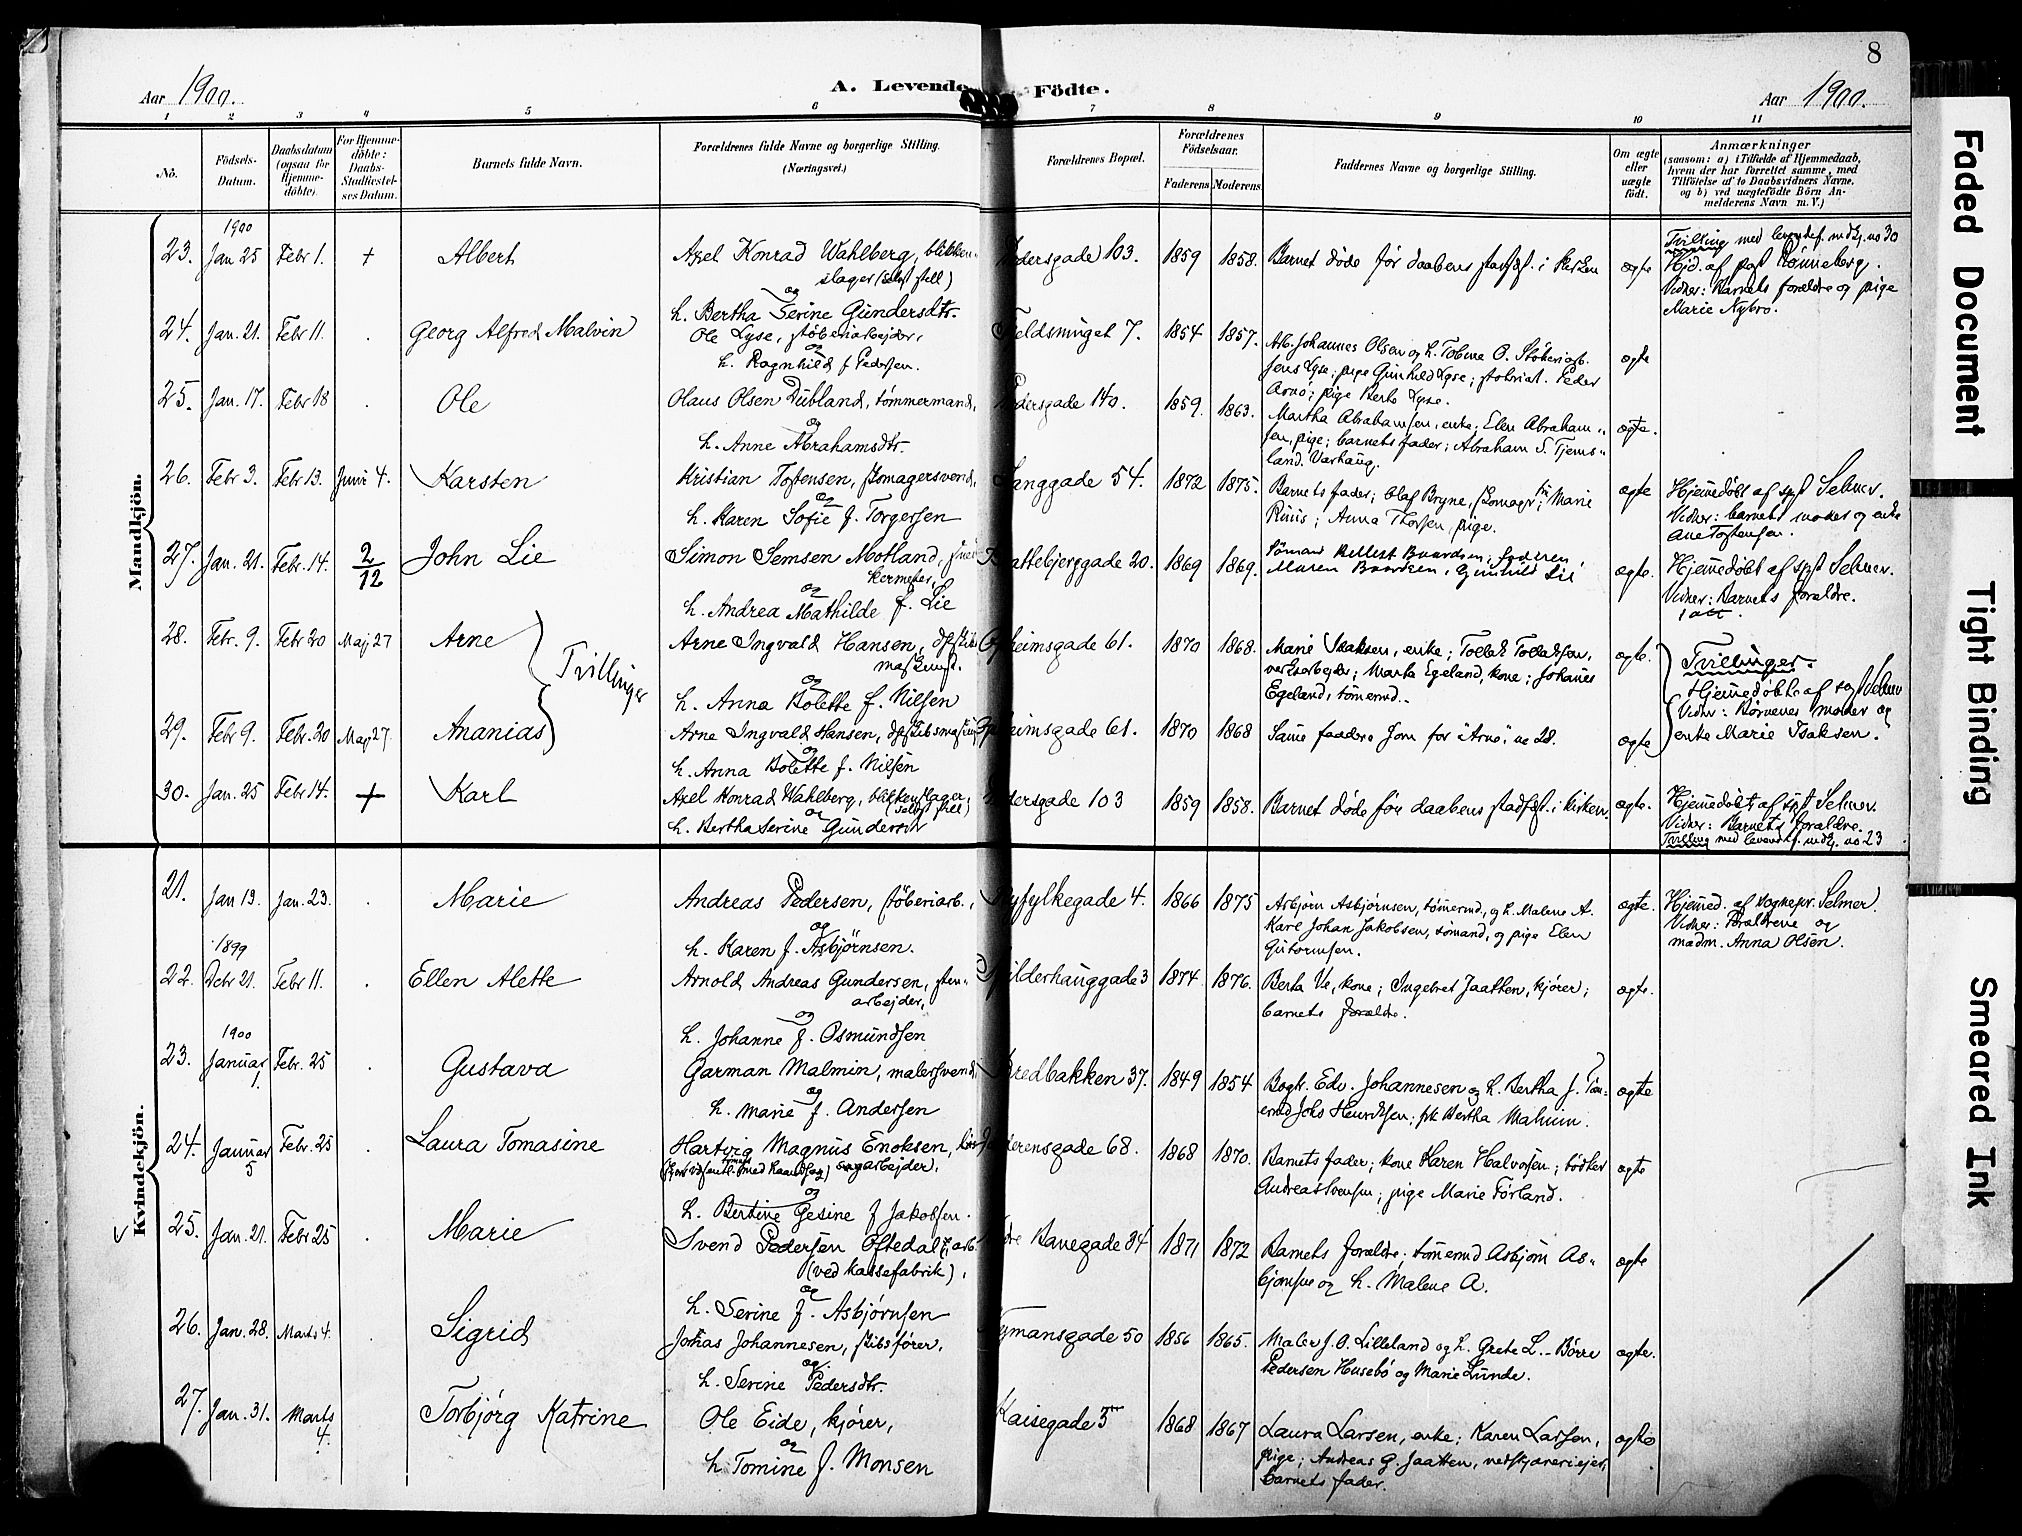 8
Aar 1900.
A. Levende Födte.
Aar 1900.
1 2 3 4 5 6 7 8 9 10 11
No.
Födsels-Datum.
Daabsdatum (ogsaa for Hjemme-döbte).
For Hjemme-döbte: Daabs-Stadfæstel-ses Datum.
Barnets fulde Navn.
Forældrenes fulde Navne og borgerlige Stilling. (Næringsvei.)
Forældrenes Bopæl.
Forældrenes Födselsaar.
Faderens Moderens.
Faddernes Navne og borgerlige Stilling.
Om ægte eller uægte födt.
Anmærkninger
(saasom: a) i Tilfælde af Hjemmedaab,
hvem der har forrettet samme, med
Tilföielse af to Daabsvidners Navne,
og b) ved uægtefödte Börn An-
melderens Navn m. V.)
Mandkjön.
1900
23. Jan 25 Febr 1. + Albert
Axel Konrad Wahlberg, blikken-
slager (selvst. stell)
og
h. Bertha Serine Gundersdtr.
103. 1859 1858. Barnet døde før daabens stadfst. i kirken ægte
Tvilling med levendef. mdkj. no 30
Hjd. af psst Rönneberg.
Vidner: Barnets forældre og pige
Marie Nybro.
24. Jan. 21. Febr 11. . Georg Alfred Malvin
Ole Lyse, støberiarbejder,
og
h. Ragnhild f. Pedersen.
7. 1854 1857.
Arb. Johannes Olsen og h. Tobine O. Støberiarb.
Jens Lyse; pige Gunhild Lyse; støberiat. Peder
Arnø; pige Berte Lyse.
ægte
25. Jan. 17. Febr 18 . Ole
Olaus Olsen Dubland, tømmermand,
og
h. Anne Abrahamsdtr.
Pedersgade 140. 1859. 1863.
Martha Abrahamsen, enke; Elen Abraham-
sen, pige; barnets fader; Abraham S. Tjems-
land. Varhaug.
ægte.
26. Febr 3. Febr 13. Juni 4. Karsten
Kristian Tostensen, skomagersvend,
og
h. Karen Sofie f. Torgersen
Langgade 54. 1872 1875.
Barnets fader; Olaf Bryne, skomagr; frk Marie
Riiis; Anna Thorsen, pige.
ægte
Hjemmedøbt af spst Selmer.
Vidner: barnets moder og enke
Ane Tostensen.
27. Jan. 21. Febr. 14. 2/12 John Lie
Simon Semsen Motland,
kermester,
og
h. Andrea Mathilde f. Lie
20. 1869 1869.
Sømand Bellest Baardsen; Soderen
Maren Baardsen, Gunhild Lie
ægte.
Hjemmedøbt af spst Selmer.
Vidner: Barnets forældre.
28. Febr. 9. Febr 20 Maj 27 Arne
Tvillinger
Arne Ingvald Hansen, dpskibs
maskinist.
og
h. Anna Bolette f. Nilsen
61. 1870 1868.
Marie Isaksen, enke; Tollak Tollaksen,
verksarbejder; Marta Egeland, kone; Johanes
Egeland, tømermd.
ægte.
Tvillinger.
Hjemmedøbte af spst Selmer
Vidner: Børnenes moder og
enke Marie Isaksen.
29. Febr 9. Febr. 20 Maj 27. Ananias
Arne Ingvald Hansen, dpskibsmaskinist
og
h. Anna Bolette f. Nilsen
61. 1870 1868 Samme faddere som for "Arne", no 28. ægte
30. Jan. 25 Febr 14. + Karl
Axel Konrad Wahlberg, blikkenslager,
(selvst. stell)
og
h. Bertha Serine Gundersen
Pedersgade 103 1859 1858. Barnet døde før daabens stadfst. i kirken. ægte.
Hjemmedøbt af spst Selmer.
Vidner: Barnets forældre.
Tvilling med levendef. mdkj. no 23
Kvindekjön.
21. Jan 13. Jan. 23. . Marie
Andreas Pedersen, støberiarb.,
og
h. Karen f. Asbjørnsen.
Ryfylkegade 4. 1866 1875
Asbjørn Asbjørnsen, tømermd, og h. Malene A.
Karl Johan Jakobsen, sømand, og pige Elen
Gutormsen.
ægte.
Hjemmed. af sognepr. Selmer.
Vidner: Forældrene og
madm. Anna Olsen.
1899
22. Debr 21. Febr 11. . Ellen Alette
Arnold Andreas Gundersen, sten-
arbejder,
og
h. Johanne f. Osmundsen
Spilderhauggade 3 1874 1876.
Berta Ve, kone; Ingebret Jaatten, kjører;
barnets forældre.
ægte.
1900
23. Januar 1. Febr. 25 . Gustava
Garman Malmin, malersvend,
og
h. Marie f. Andersen
Bredbakken 37. 1849 1854
Bogh. Edv. Johannesen og h. Bertha J. Tøm-
ermd Johs Henriksen; frk Bertha Malmin.
ægte
24. Januar 5 Febr. 25 . Laura Tomasine
Hartvig Magnus Enoksen,
sagarbejder,
og
h. Bertine Gesine f Jakobsen.
68. 1868 1870.
Barnets fader; kone Karen Halvorsen; bødker
Andreas Svensen; pige Marie Førland.
ægte
25. Jan. 21. Febr 25 . Marie
Svend Pedersen Oftedal, arb.
(ved kassefabrik),
og
h. Serine f. Asbjørnsen
Banegade 34 1871 1872
Barnets forældre; tømermd Asbjørn As-
bjørnsen og h. Malene A.
ægte
26. Jan. 28. Marts 4. . Sigrid
Jonas Johannesen, skibsfører,
og
h. Serine Pedersdtr.
Nymansgade 50 1856 1865.
Maler J. O. Lilleland og h. Grete L. - Børre
Pedersen Husebø og Marie Lunde.
ægte.
27. Jan. 31. Marts 4. Torbjørg Katrine
Ole Eide, kjører,
og
h. Tomine f. Monsen
Kaisegade 3 1868 1867
Laura Larsen, enke; Karen Larsen,
pige; Andreas G. Jaatten,
barnets fader.
ægte
Faded Document
Tight Binding
Smeared Ink